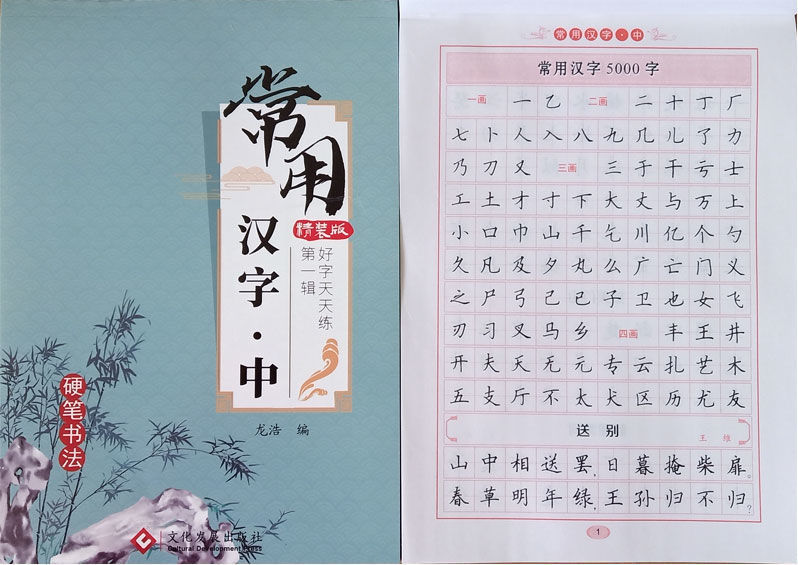 常用
精装版
汉字·中
好字天天练
第一辑
硬笔书法
龙浩 编
文化发展出版社
Cultural Development Press
常用汉字·中
常用汉字5000字
一画 一 乙 二画 二 十 丁 厂
七 卜 人 入 八 九 几 儿 了 力
乃 刀 又 三画 三 于 干 亏 士
工 土 才 寸 下 大 丈 与 万 上
小 口 巾 山 千 乞 川 亿 个 勺
久 凡 及 夕 丸 么 广 亡 门 义
之 尸 弓 己 已 子 卫 也 女 飞
刃 习 叉 马 乡 四画 丰 王 井
开 夫 天 无 元 专 云 扎 艺 木
五 支 厅 不 太 犬 区 历 尤 友
送别
王维
山中相送罢,日暮掩柴扉。
春草明年绿,王孙归不归?
1